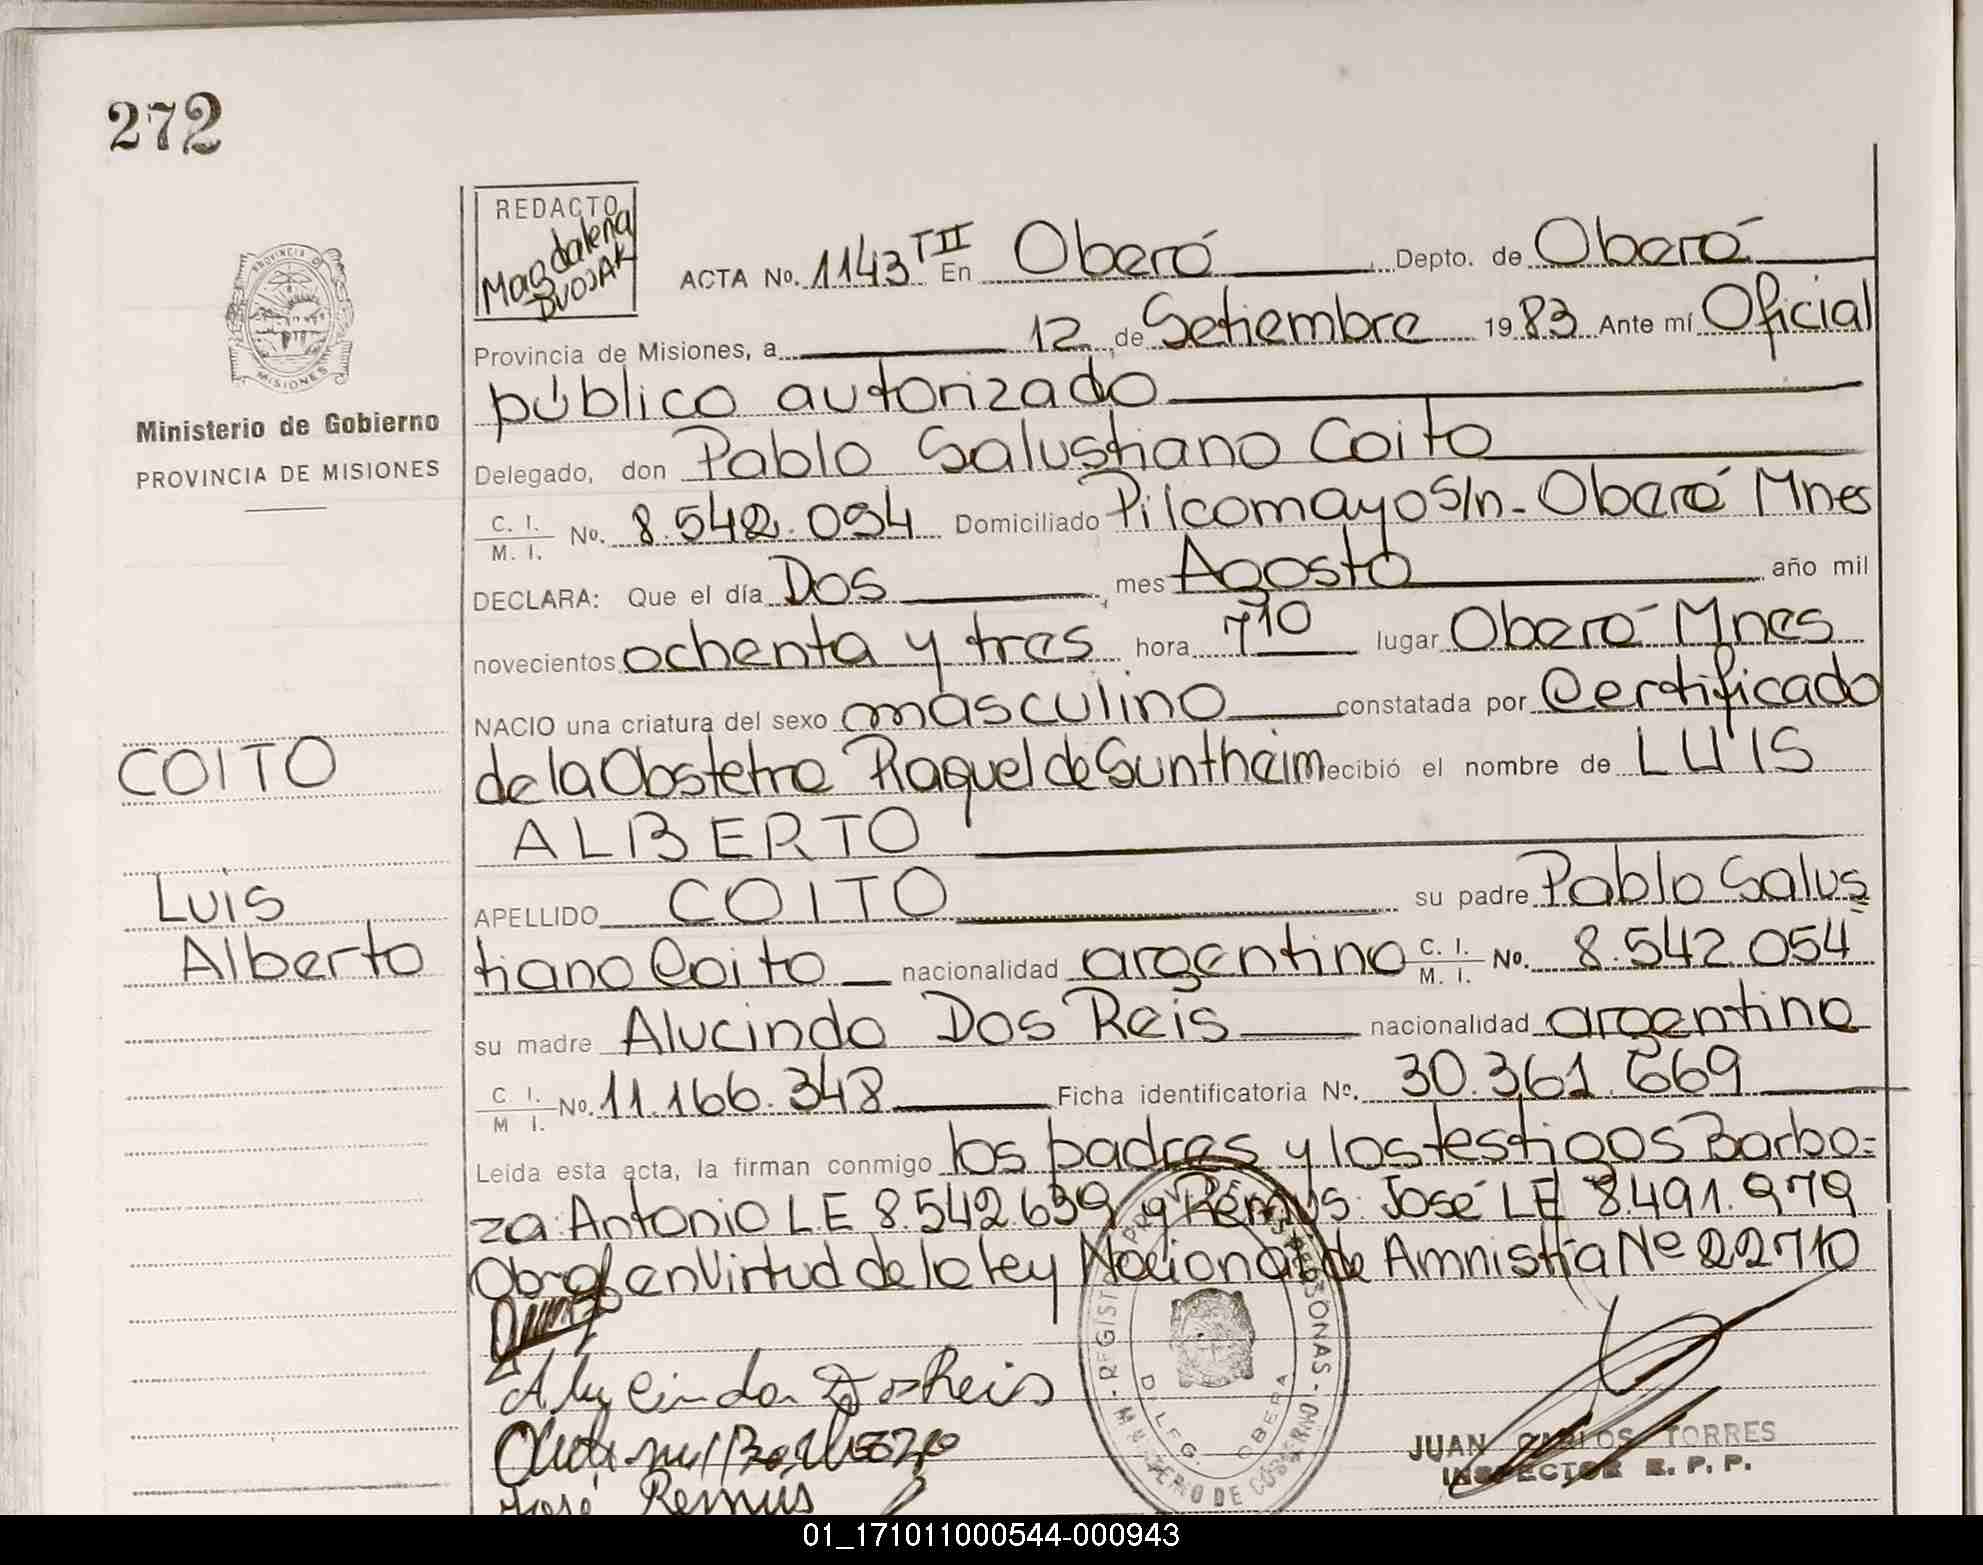 272
REDACTO
Magdalena
DVOJAK
ACTA No. 1143 TII En Oberá Depto. de Oberá
Provincia de Misiones, a 12 de Setiembre 1983 Ante mí Oficial
público autorizado
Delegado, don Pablo Salustiano Coito
C. I. / M. I. No. 8.542.054 Domiciliado Pilcomayo S/n - Oberá Mnes
DECLARA: Que el día Dos mes Agosto año mil
novecientos ochenta y tres hora 7 10 lugar Oberá Mnes
NACIO una criatura del sexo masculino constatada por Certificado
de la Obstetra Raquel de Suntheim ecibió el nombre de LUIS
ALBERTO
APELLIDO COITO su padre Pablo Salus
tiano Coito nacionalidad argentino C. I. / M. I. No. 8.542.054
su madre Alucinda Dos Reis nacionalidad argentina
C I. / M I. No. 11.166.348 Ficha identificatoria No. 30.361.669
Leída esta acta, la firman conmigo los padres y los testigos Barbo=
za Antonio L.E 8.542.639 y Remus José LE 8.491.979
Obrof en Virtud de la ley Nacional de Amnistía No 22710
Alucinda Dos Reis
José Remus
PROVINCIA D
MISIONES
Ministerio de Gobierno
PROVINCIA DE MISIONES
COITO
Luis
Alberto
REGIST PERSONAS
MINISTERIO DE GOBIERNO
DLEG. OBERA
JUAN CARLOS TORRES
INSPECTOR R. P. P.
01_171011000544-000943